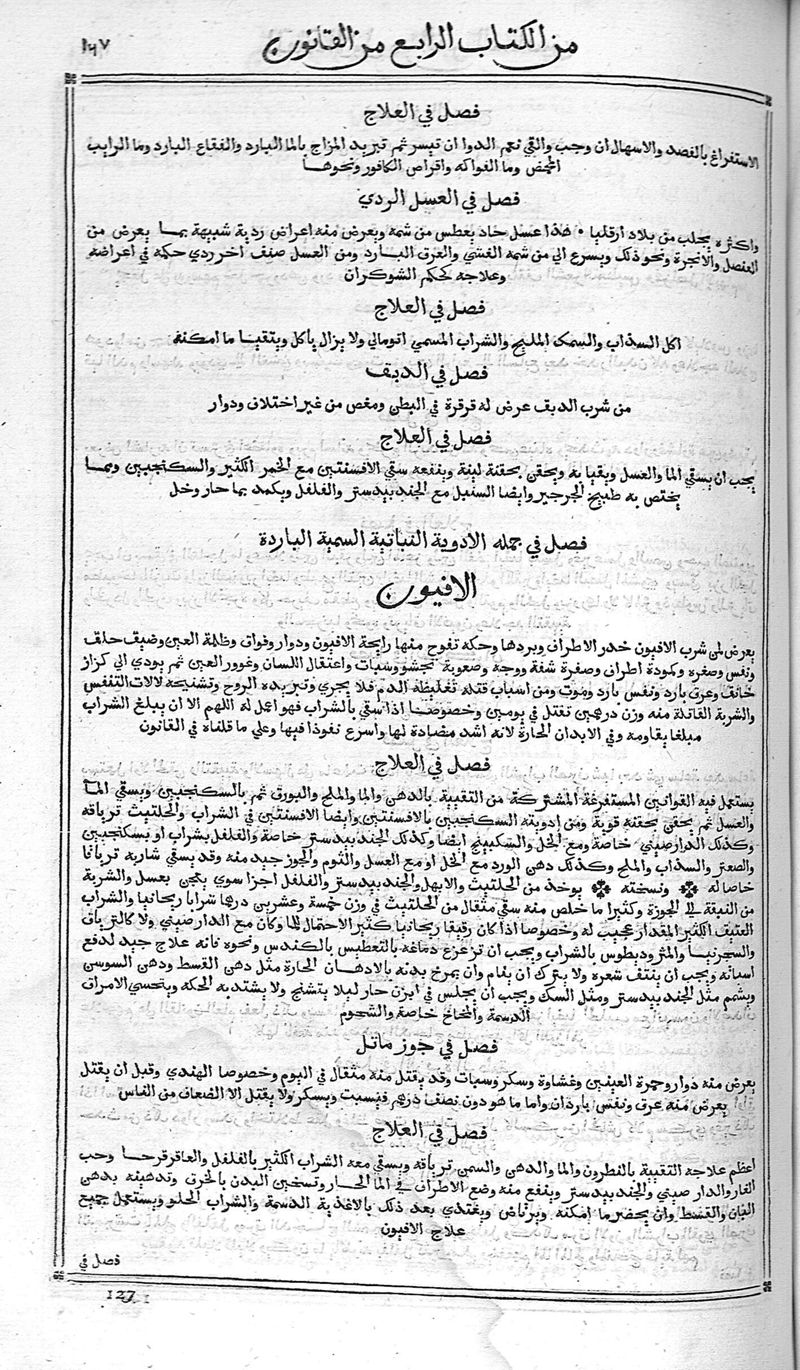 من الكتاب الرابع من القانون
١٦٧
فصل في العلاج
الاستفراغ بالفصد والاسهال ان وجب والقي نعم الدوا ان تيسر ثم تبريد المزاج بالما البارد والفقاع البارد وما الرايب
المخض وما الفواكه واقراص الكافور ونحوها
فصل في العسل الردي
واكثره يجلب من بلاد ارقليا • هذا عسل حاد يعطس من شمه ويعرض منه اعراض ردية شبيهة بما يعرض من
العنصل والانجرة ونحو ذلك ويسرع الي من شمه الغشي والعرق البارد ومن العسل صنف اخر ردي حكمه في اعراضه
وعلاجه كحكم الشوكران
فصل في العلاج
اكل السذاب والسمك المليح والشراب المسمي انومالي ولا يزال ياكل ويتقيا ما امكنه
فصل في الدبق
من شرب الدبق عرض له قرقرة في البطن ومغص من غير اختلاف ودوار
فصل في العلاج
يجب ان يسقي الما والعسل ويقيا به ويحقن بحقنة لينة وينفعه سقي الافسنتين مع الخمر الكثير والسكنجبين ومما
يختص به طبيخ الجرجير وايضا السنبل مع الجندبيدستر والفلفل ويكمد بما حار وخل
فصل في جمله الادوية النباتية السمية الباردة
الافيون
يعرض لمن شرب الافيون خدر الاطراف وبردها وحكه تفوح منها رايحة الافيون ودوار وفواق وظلمة العين وضيق حلق
ونفس وصغره وكمودة اطراف وصفرة شفة ووجه وصعوبة تجشو وسبات واعتقال اللسان وغوور العين ثم يودي الي كزاز
خانق وعرق بارد ونفس بارد وموت ومن اسباب قتله تغليظه الدم فلا يجري وتبريده الروح وتشنيجه لالات التنفس
والشربة القاتلة منه وزن درهمين تقتل في يومين وخصوصا اذا سقي بالشراب فهو اعمل له اللهم الا ان يبلغ الشراب
مبلغا يقاومه وفي الابدان الحارة لانه اشد مضادة لها واسرع نفوذا فيها وعلي ما قلناه في القانون
فصل في العلاج
يستعمل فيه القوانين المستفرغة المشتركة من التقيية بالدهن والما والملح والبورق ثم بالسكنجبين ويسقي الما
والعسل ثم يحقن بحقنه قوية ومن ادويته السكنجبين بالافسنتين وايضا الافسنتين في الشراب والحلتيث ترياقه
وكذلك الدارصيني خاصة ومع الخل والسكبينج ايضا وكذلك الجندبيدستر خاصة والفلفل بشراب او بسكنجبين
والصعتر والسذاب والملح وكذلك دهن الورد مع الخل او مع العسل والثوم والجوز جيد منه وقد يسقي شاربه ترياقا
خاصا له ونسخته يوخذ من الحلتيث والابهل والجندبيدستر والفلفل اجزا سوي يعجن بعسل والشربة
من النبقة الي الجوزة وكثيرا ما خلص منه سقي مثقال من الحلتيث في وزن خمسة وعشرين درهما شرابا ريحانيا والشراب
العتيق الكثير المقدار عجيب له وخصوصا اذا كان رقيقا ريحانيا كثير الاحتمال للما وكان مع الدارصيني ولا كالترياق
والسجرنيا والمثروديطوس بالشراب ويجب ان تزعزع دماغه بالتعطيس بالكندس ونحوه فانه علاج جيد لدفع
اسباته ويجب ان ينتف شعره ولا يترك ان ينام وان يمرخ بدنه بالادهان الحارة مثل دهن القسط ودهن السوسن
ويشمم مثل الجندبيدستر ومثل السك ويجب ان يجلس في ابزن حار ليلا يتشنج ولا يشتد به الحكة ويتحسي الامراق
الدسمة والمخاخ خاصة والشحوم
فصل في جوز ماثل
يعرض منه دوار وحمرة العينين وغشاوة وسكر وسبات وقد يقتل منه مثقال في اليوم وخصوصا الهندي وقبل ان يقتل
يعرض منه عرق ونفس باردان واما ما هو دون نصف درهم فيسبت ويسكر ولا يقتل الا الضعاف من الناس
فصل في العلاج
اعظم علاجه التقيية بالنطرون والما والدهن والسمن ترياقه ويسقي معه الشراب الكثير بالفلفل والعاقرقرحا وحب
الغار والدار صيني والجندبيدستر وينفع منه وضع الاطراف في الما الحار وتسخين البدن بالخرق وتدهينه بدهن
البان والقسط وان يحضر ما امكنه ويرتاض ويغتذي بعد ذلك بالاغذية الدسمة والشراب الحلو ويستعمل جميع
علاج الافيون
فصل في
127